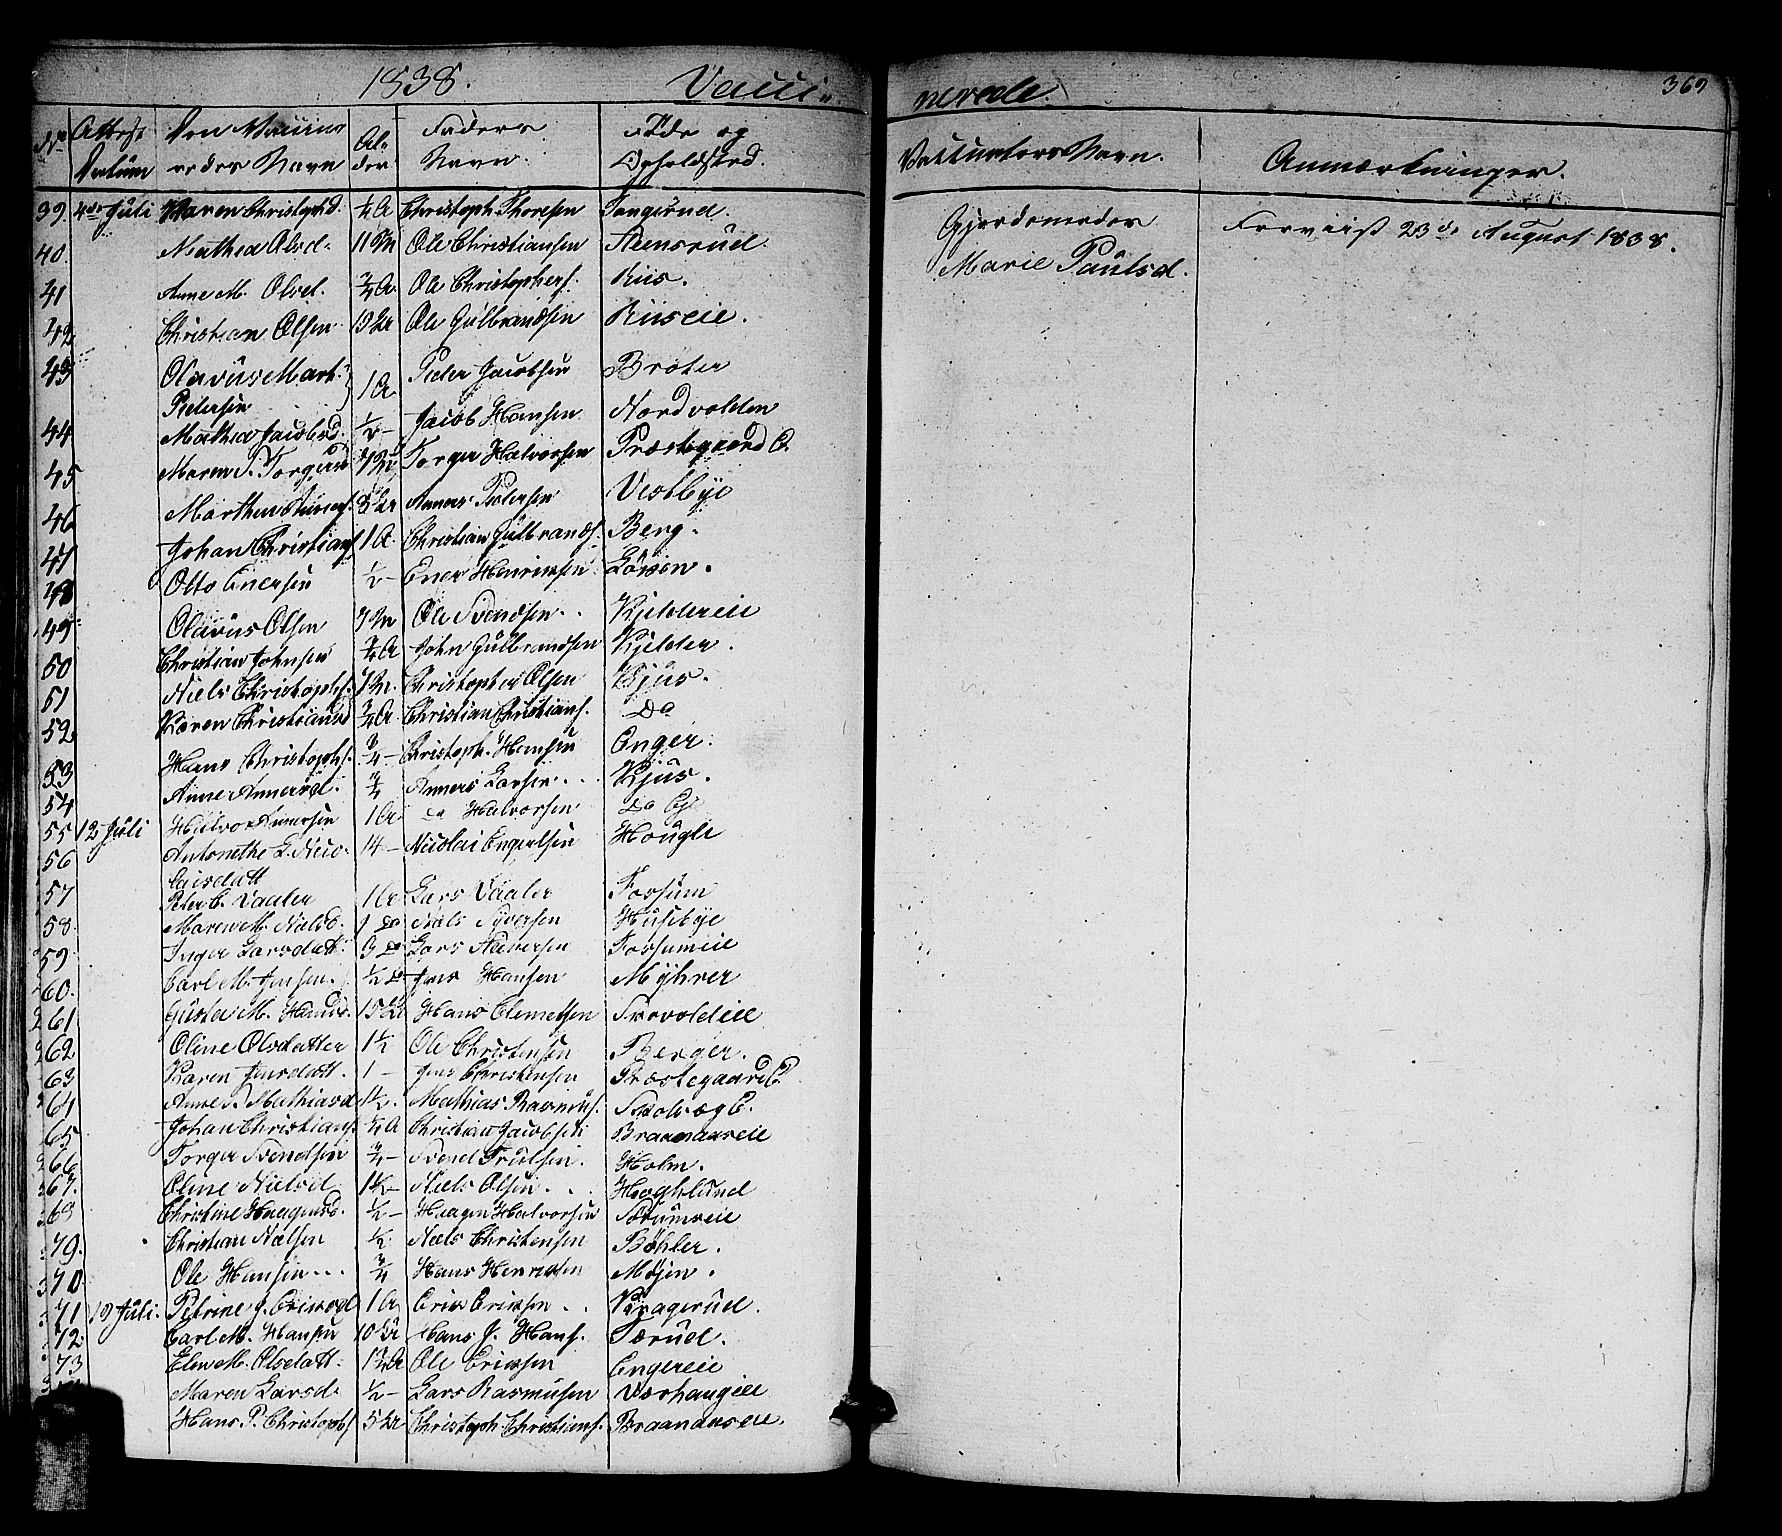 1838. Vacci-
nerede. 369
No Attest Datum Den Vaccinerede's Navn Alder Faders Navn. Føde og Opholdssted. Vaccinateurs Navn. Anmærkninger.
39. 4de Juli Karen Christophd. ¼ A Christoph. Thoresen Tangerud. Gjordemoder Foreviist 23de August 1838.
40. Mathea Olsd. 11 M Ole Christiansen Steensrud. Marie Paulsd.
41 Anne M. Olsd. ¾ A Ole Christophers. Riis.
42 Christian Olsen Ole Gulbrandsen Riiseie.
43 Olavus Mart. Pedersen 1 A Peder Jacobsen Bråten
44 Mathea Jacobsd. ½ - Jacob Hansen Nordvolden
45 Maren P. Torgersd Torger Halvorsen Præstegaard E.
46 Anners Pedersen Vestbye
47 Johan Christians. 1 A. Christian Gulbrands. Berg.
48 Otto Enersen ½ - Ener Henriksen
49 Olavus Olsen 7 M Ole Svendsen Kjeldereie
50 Christian Johnsen ¾ A John Gulbrandsen Kjelder.
51 Niels Christophs. Christopher Olsen Kjus.
52 Karen Christiansd ¾ A Christian Christians. Do
53 Hans Christophs. ¾ - Christoph. Hansen Enger.
54 Anne Annersd. ¾ Anners Larsen Kjus.
55 12 Juli Halvor Annersen 1 A Do Halvorsen Do Eje
56 Antonethe L. Nicolaisdatt 14 - Nicolai Engelsen Hougli
57 Peter C. Vaaler 1 A Lars Vaaler Fossum
58. Maren M. Nielsd. 1 Do Niels Syversen Husebye
59 Inger Larsdatt. 9 Do Lars Fossumeie
60. Carl M. Jensen. ½ Do Jens Hansen Myhrer
61 Gusta M. Hansd. Hans Clemetsen
62 Oline Olsdatter 1½ Ole Christensen Berger.
63 Karen Jensdatt. 1 - Jens Christensen Præstegaard E.
64 Anne B. Mathiasd 1½. Mathias Rasmus.
65 Johan Christians Christian Jacobsen Braanaaseie
66 Torger Svendsen ¾ - Svend Trulsen. Holm.
67. Oline Nielsd Niels Olsen Haghlund
68 Christine Haagensd. ½ - Haagen Halvorsen
79. Christian Nielsen ½ Niels Christensen Bøhler.
70 Ole Hansen ¾ Hans Henriksen Møjen.
71 19 Juli. Petrine J. Ericsd 1 A Eric Ericsen Kragerud.
72 Carl M. Hansen Hans J. Hans. Tærud.
73 Elen M. Olsdatt. Ole Ericsen Engereie
Maren Larsd. ½ - Lars Rasmusen Værhaugeie
Hans P. Christophs Christoph. Christians. Braanaaseie.